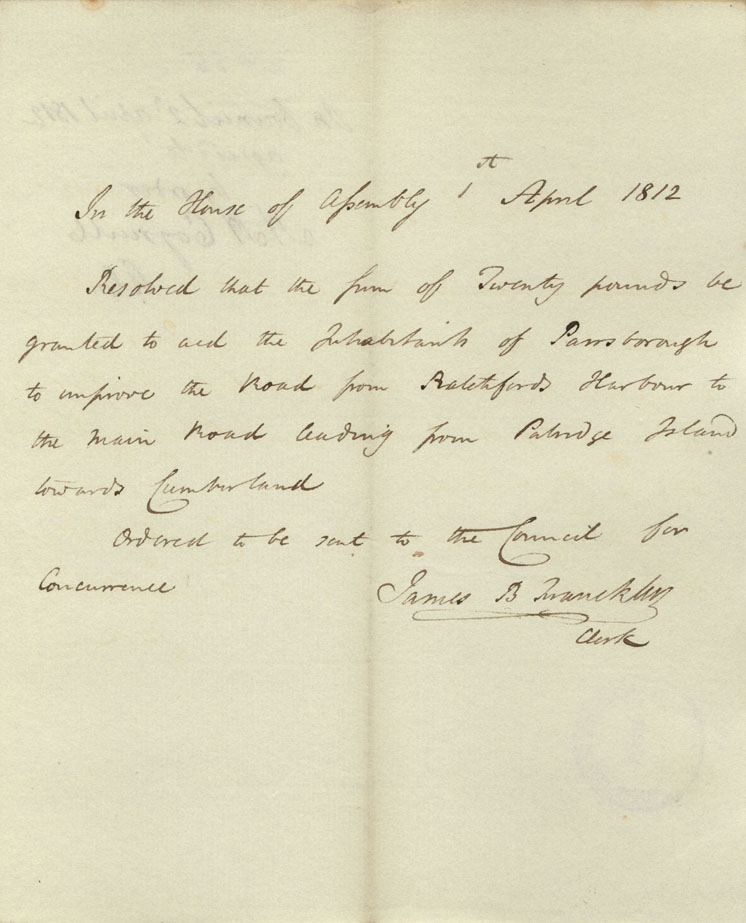 In the House of Assembly 1st April 1812
Resolved that the sum of Twenty pounds be
granted to aid the Inhabitants of Parrsborough
to improve the Road from Ratchfords Harbour to
the Main Road leading from Patridge Island
towards Cumberland
Ordered to be sent to the Council for
Concurrence
James B Francklin
Clerk